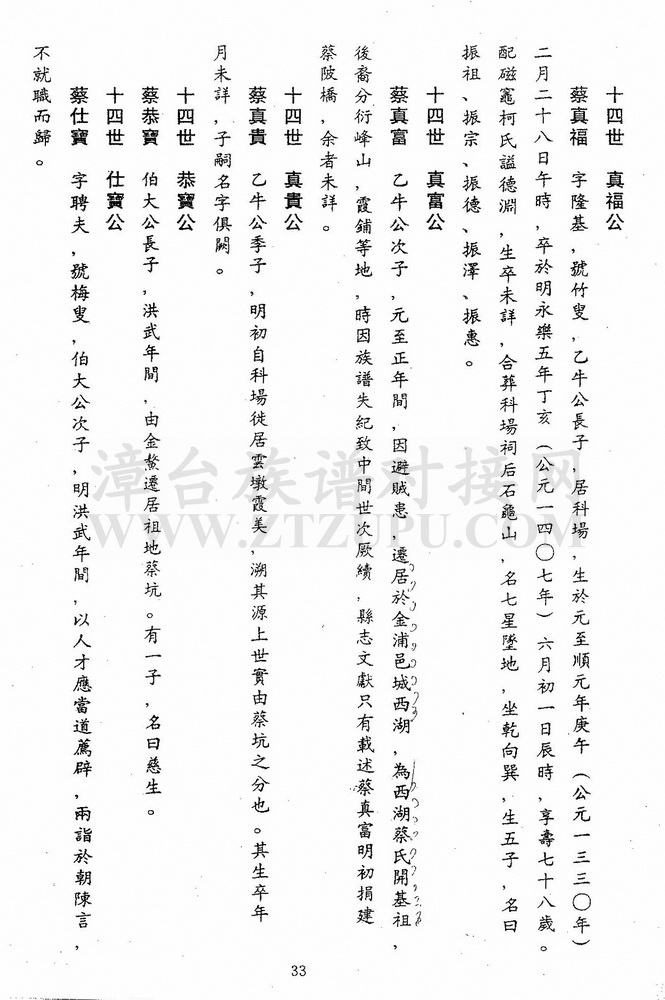 十四世　真福公
蔡真福　字隆基，號竹叟，乙牛公長子，居科場，生於元至順元年庚午（公元一三三〇年）
二月二十八日午時，卒於明永樂五年丁亥（公元一四〇七年）六月初一日辰時，享壽七十八歲。
配磁竈柯氏謚德淵，生卒未詳，合葬科場祠后石龜山，名七星墜地，坐乾向巽，生五子，名曰
振祖、振宗、振德、振澤、振惠。
十四世　真富公
蔡真富　乙牛公次子，元至正年間，因避賊患，遷居於金浦邑城西湖，為西湖蔡氏開基祖，
後裔分衍峰山，霞鋪等地，時因族譜失紀致中間世次厥續，縣志文獻只有載述蔡真富明初捐建
蔡陂橋，余者未詳。
十四世　真貴公
蔡真貴　乙牛公季子，明初自科場徙居雲墩霞美，溯其源上世實由蔡坑之分也。其生卒年
月未詳，子嗣名字俱闕。
十四世　恭寶公
蔡恭寶　伯大公長子，洪武年間，由金鰲遷居祖地蔡坑。有一子，名曰慈生。
十四世　仕寶公
蔡仕寶　字聘夫，號梅叟，伯大公次子，明洪武年間，以人才應當道薦辟，兩詣於朝陳言，
不就職而歸。
漳台族谱对接网
WWW.ZTZUPU.COM
33